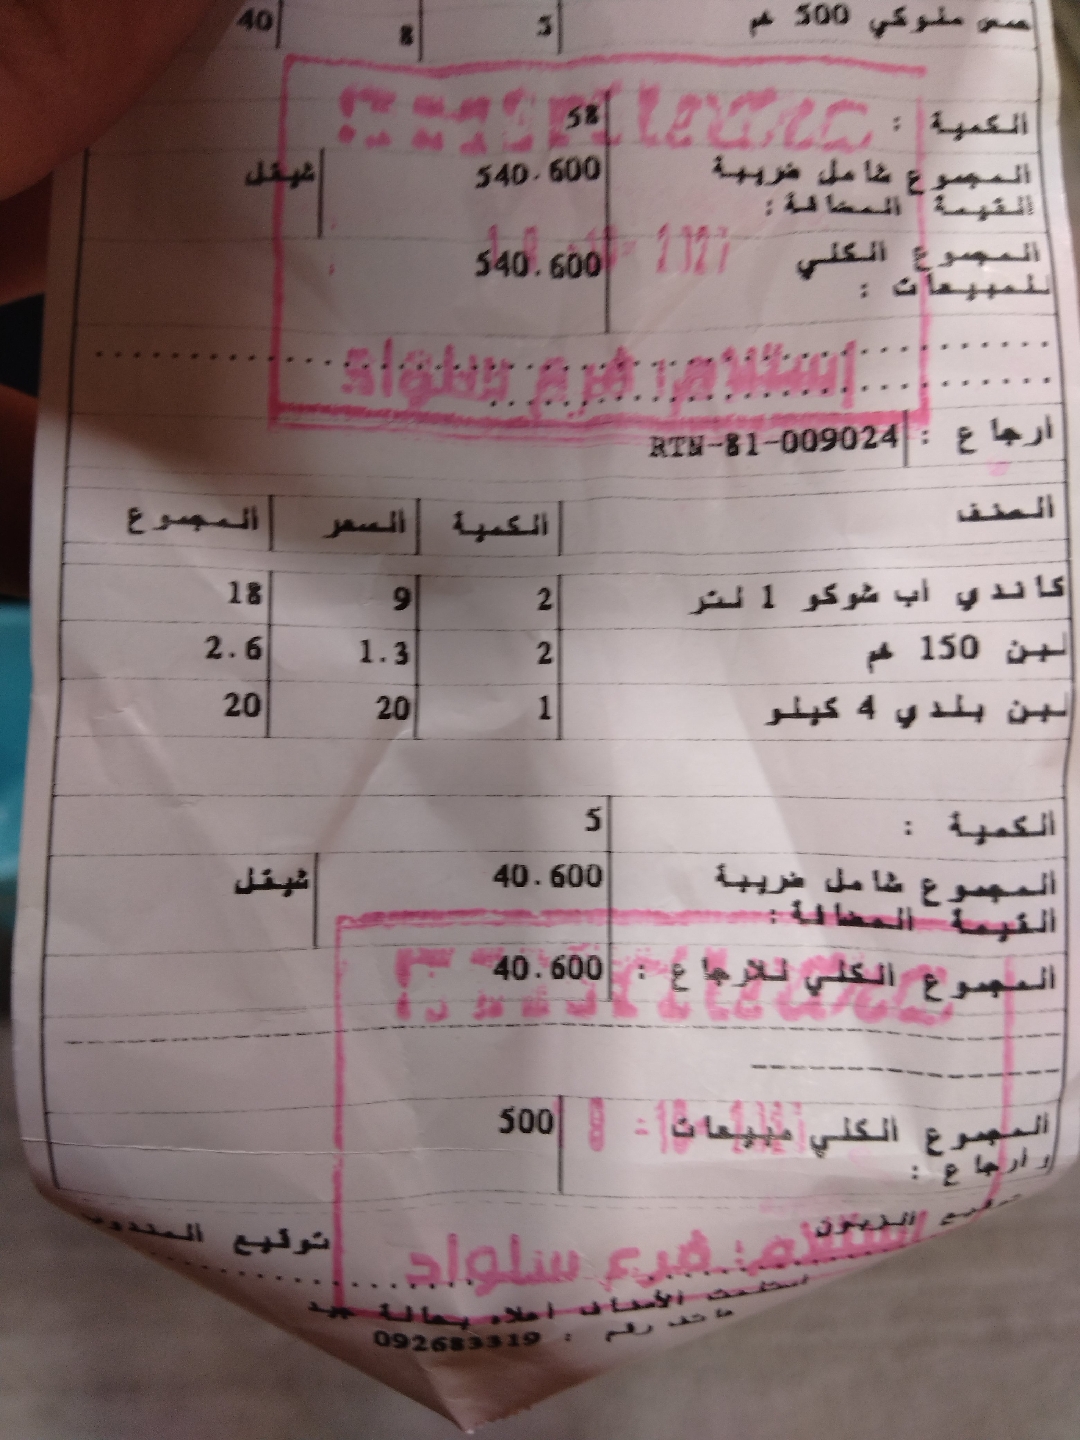 حمص ملوكي 500 غم 5 8 40
الكمية : 58
المجموع شامل ضريبة 540.600 شيقل
القيمة المضافة :
المجموع الكلي 540.600
للمبيعات :
استلام: فرع سلواد
أرجاع : RTN-81-009024
الصنف الكمية السعر المجموع
كاندي أب شوكو 1 لتر 2 9 18
لبن 150 غم 2 1.3 2.6
لبن بلدي 4 كيلو 1 20 20
الكمية : 5
المجموع شامل ضريبة 40.600 شيقل
القيمة المضافة :
المجموع الكلي للارجاع : 40.600
المجموع الكلي مبيعات 500
وأرجاع :
توقيع الزبون توقيع المندوب
استلام: فرع سلواد
استلمت الأصناف أعلاه بحالة جيد
هاتف رقم : 092683319